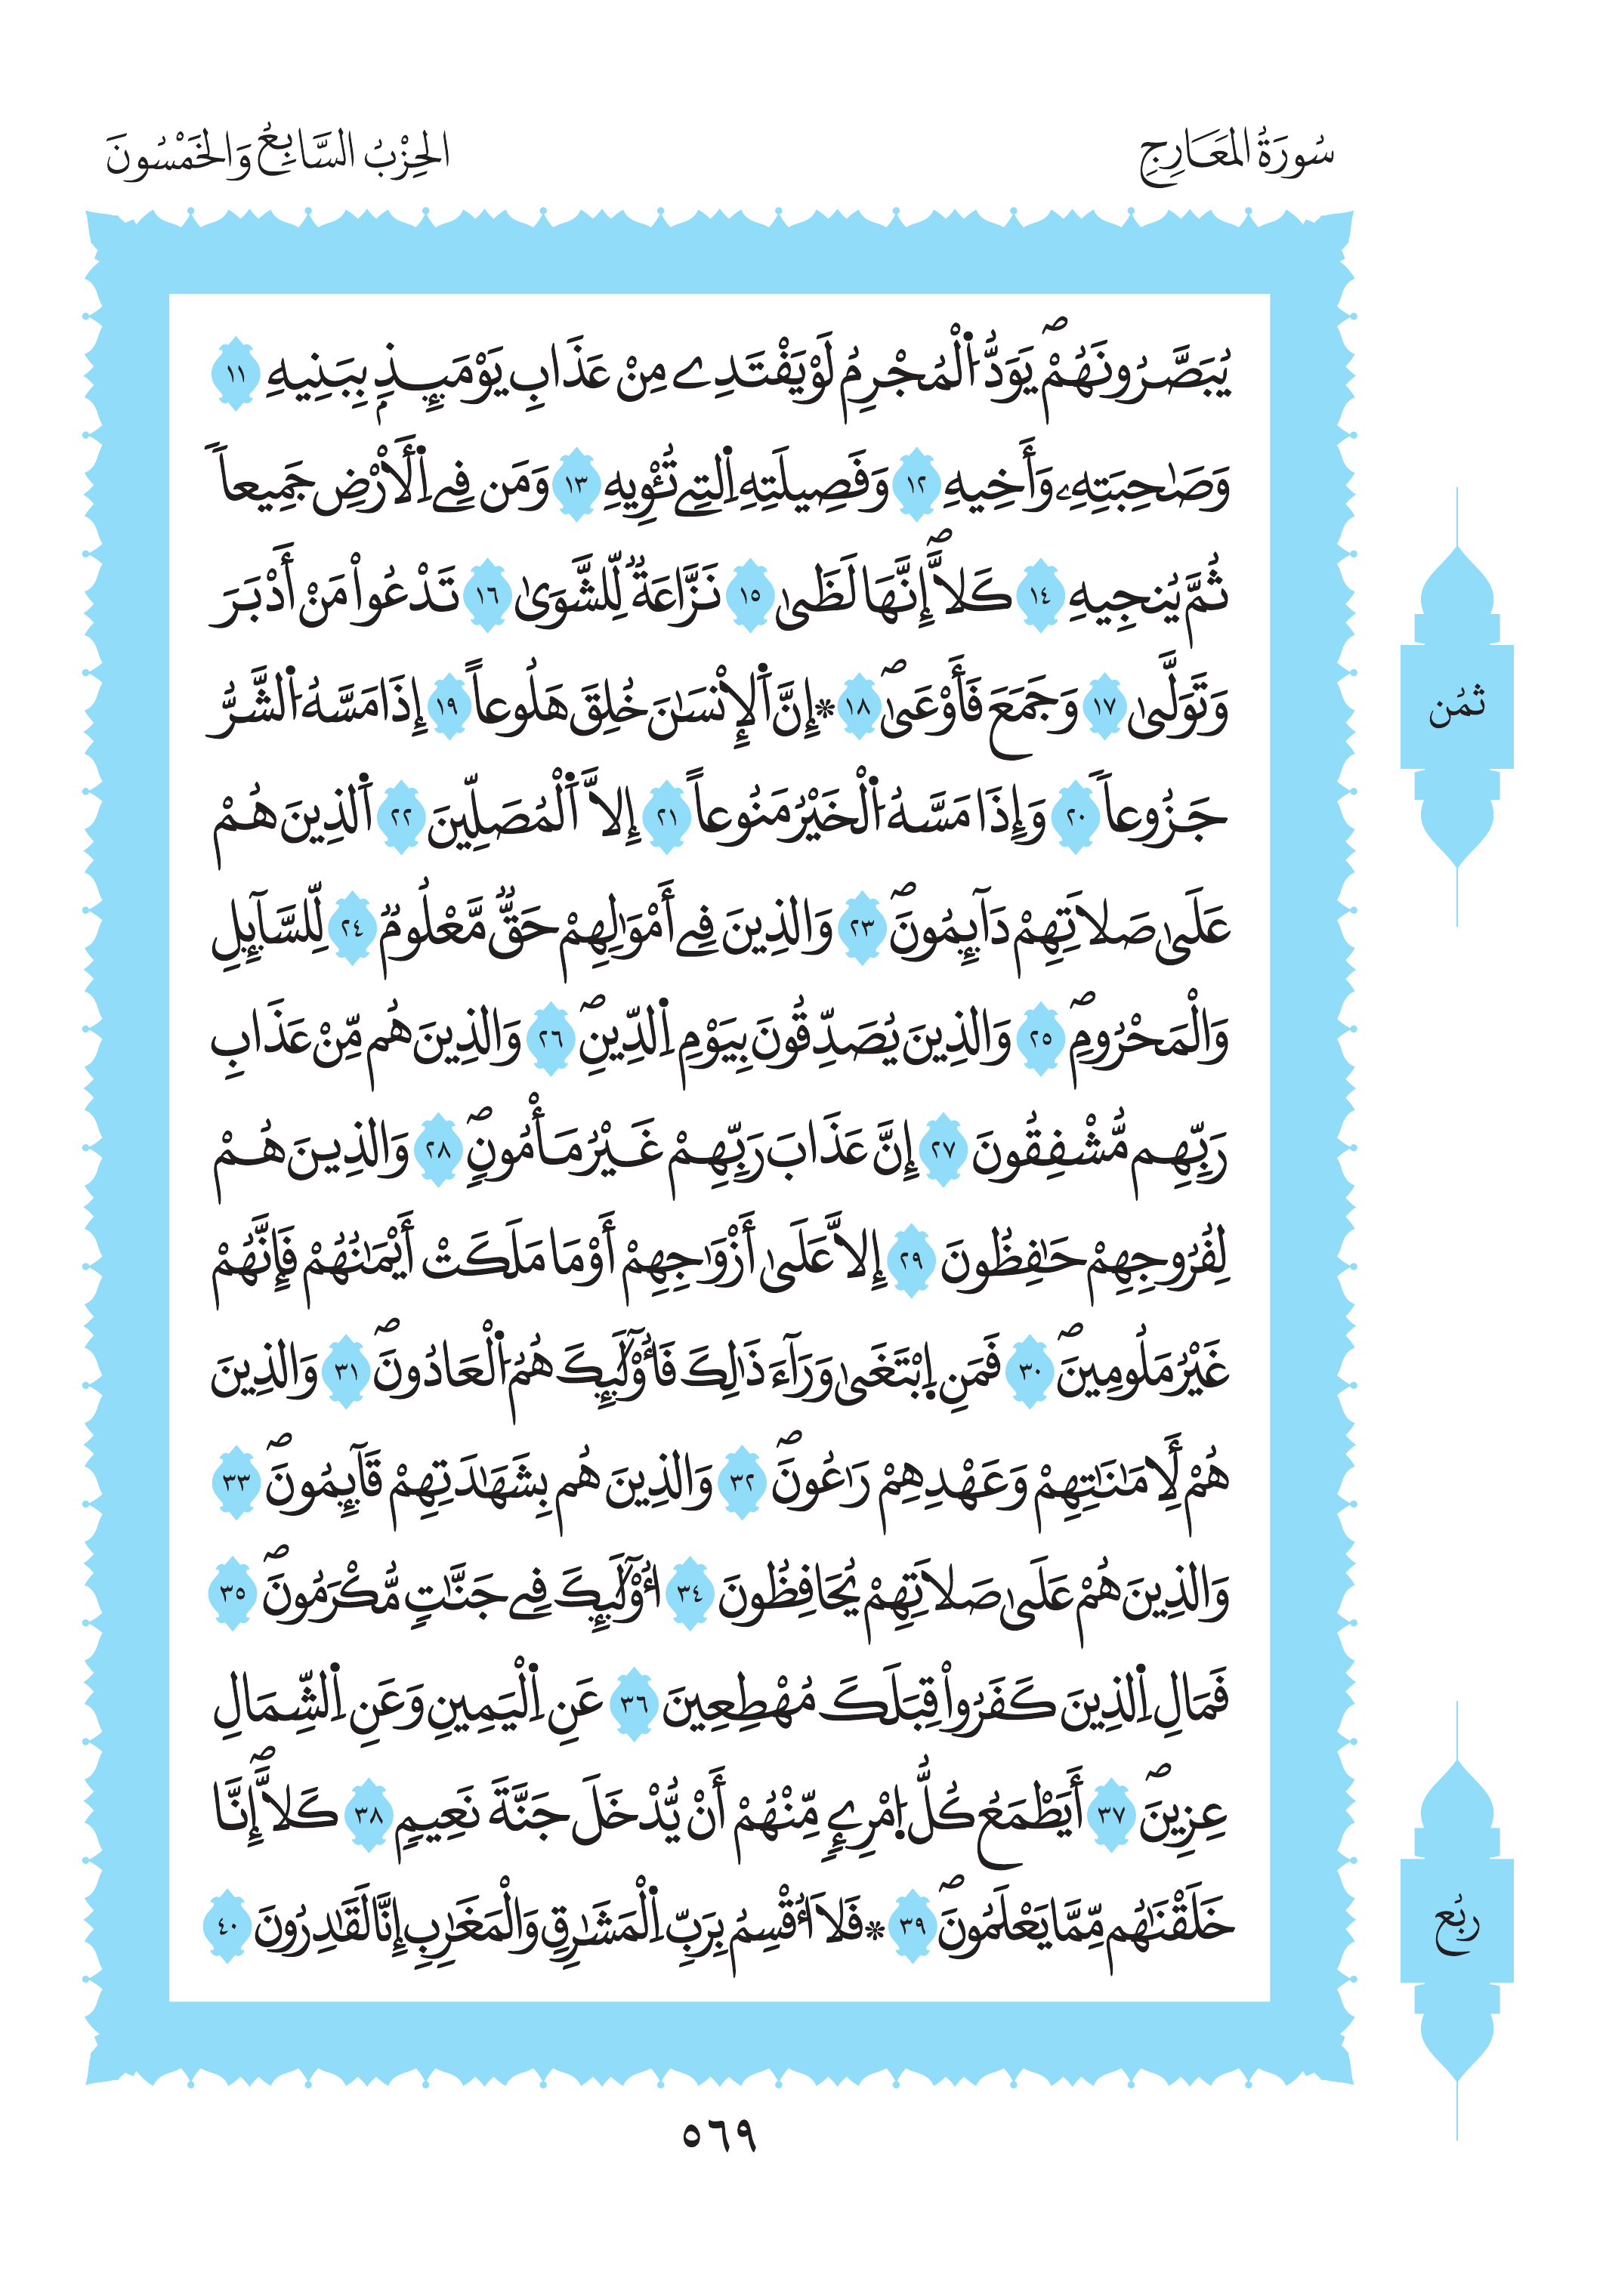 سُورَةُ المَعَارِجِ
الحِزْبُ السَّابِعُ وَالخَمْسُونَ
يُبَصَّرُونَهُمْۖ يَوَدُّ اُ۬لْمُجْرِمُ لَوْ يَفْتَدِے مِنْ عَذَابِ يَوْمَئِذِۢ بِبَنِيهِ ١١
وَصَٰحِبَتِهِۦ وَأَخِيهِ ١٢ وَفَصِيلَتِهِ اِ۬لتِے تُـْٔوِيهِ ١٣ وَمَن فِے اِ۬لَارْضِ جَمِيعاٗ
ثُمَّ يُنجِيهِ ١٤ كَلَّآۖ إِنَّهَا لَظَىٰ ١٥ نَزَّاعَةٞ لِّلشَّوَىٰ ١٦ تَدْعُواْ مَنَ اَدْبَرَ
وَتَوَلَّىٰ ١٧ وَجَمَعَ فَأَوْعَىٰٓۖ ١٨ ۞إِنَّ اَ۬لِانسَٰنَ خُلِقَ هَلُوعاً ١٩ إِذَا مَسَّهُ اُ۬لشَّرُّ
جَزُوعاٗ ٢٠ وَإِذَا مَسَّهُ اُ۬لْخَيْرُ مَنُوعاً ٢١ إِلَّا اَ۬لْمُصَلِّينَ ٢٢ اَ۬لذِينَ هُمْ
عَلَىٰ صَلَاتِهِمْ دَآئِمُونَۖ ٢٣ وَالذِينَ فِے أَمْوَٰلِهِمْ حَقّٞ مَّعْلُومٞ ٢٤ لِّلسَّآئِلِ
وَالْمَحْرُومِۖ ٢٥ وَالذِينَ يُصَدِّقُونَ بِيَوْمِ اِ۬لدِّينِۖ ٢٦ وَالذِينَ هُم مِّنْ عَذَابِ
رَبِّهِم مُّشْفِقُونَ ٢٧ إِنَّ عَذَابَ رَبِّهِمْ غَيْرُ مَأْمُونٖۖ ٢٨ وَالذِينَ هُمْ
لِفُرُوجِهِمْ حَٰفِظُونَ ٢٩ إِلَّا عَلَىٰ أَزْوَٰجِهِمْ أَوْ مَا مَلَكَتْ أَيْمَٰنُهُمْ فَإِنَّهُمْ
غَيْرُ مَلُومِينَۖ ٣٠ فَمَنِ اِ۪بْتَغَىٰ وَرَآءَ ذَٰلِكَ فَأُوْلَٰٓئِكَ هُمُ اُ۬لْعَادُونَۖ ٣١ وَالذِينَ
هُمْ لِأَمَٰنَٰتِهِمْ وَعَهْدِهِمْ رَٰعُونَۖ ٣٢ وَالذِينَ هُم بِشَهَٰدَتِهِمْ قَآئِمُونَۖ ٣٣
وَالذِينَ هُمْ عَلَىٰ صَلَاتِهِمْ يُحَافِظُونَ ٣٤ أُوْلَٰٓئِكَ فِے جَنَّٰتٖ مُّكْرَمُونَۖ ٣٥
فَمَالِ اِ۬لذِينَ كَفَرُواْ قِبَلَكَ مُهْطِعِينَ ٣٦ عَنِ اِ۬لْيَمِينِ وَعَنِ اِ۬لشِّمَالِ
عِزِينَۖ ٣٧ أَيَطْمَعُ كُلُّ اُ۪مْرِےٕٖ مِّنْهُمْ أَنْ يُّدْخَلَ جَنَّةَ نَعِيمٖ ٣٨ كَلَّآۖ إِنَّا
خَلَقْنَٰهُم مِّمَّا يَعْلَمُونَۖ ٣٩ ۞فَلَا أُقْسِمُ بِرَبِّ اِ۬لْمَشَٰرِقِ وَالْمَغَٰرِبِ إِنَّا لَقَٰدِرُونَ ٤٠
ثمُن
ربُع
٥٦٩